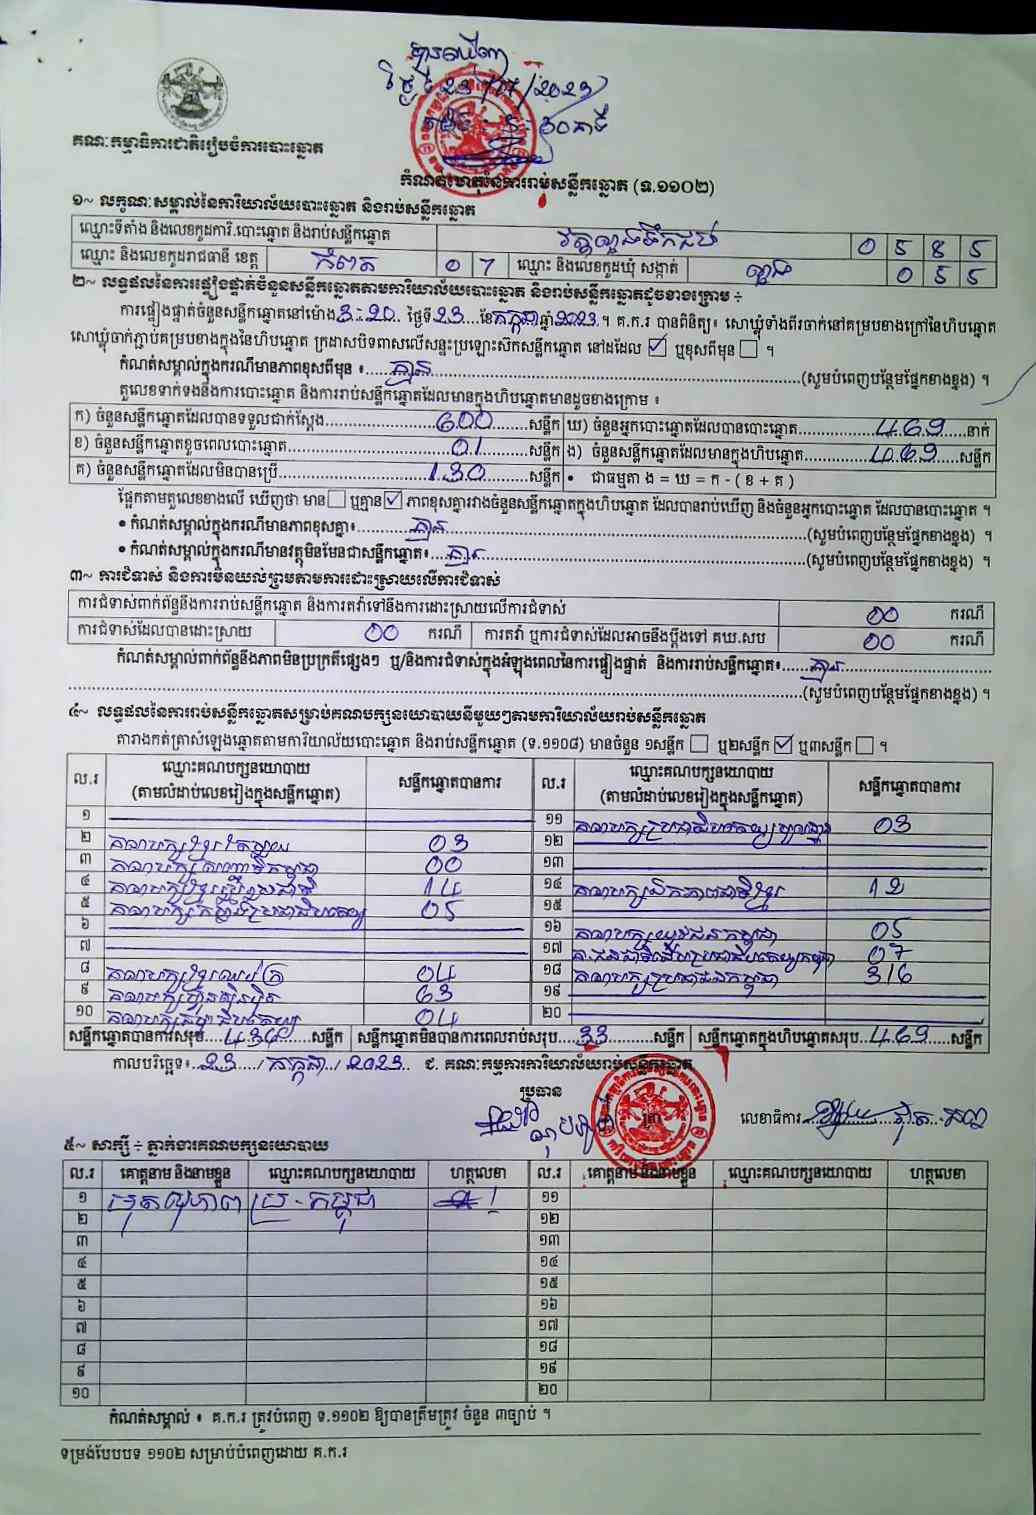 បានឃើញ
ថ្ងៃទី 23/07/2023
គណៈកម្មាធិការជាតិរៀបចំការបោះឆ្នោត
កំណត់ហេតុនៃការរាប់សន្លឹកឆ្នោត (ទ.១១០២)
១~ លក្ខណៈសម្គាល់នៃការិយាល័យបោះឆ្នោត និងរាប់សន្លឹកឆ្នោត
ឈ្មោះទីតាំង និងលេខកូដការិ.បោះឆ្នោត និងរាប់សន្លឹកឆ្នោត 0 5 8 5
ឈ្មោះ និងលេខកូដរាជធានី ខេត្ត កំពត 0 7 ឈ្មោះ និងលេខកូដឃុំ សង្កាត់ 0 5 5
២~ លទ្ធផលនៃការផ្ទៀងផ្ទាត់ចំនួនសន្លឹកឆ្នោតតាមការិយាល័យបោះឆ្នោត និងរាប់សន្លឹកឆ្នោតដូចខាងក្រោម ÷
ការផ្ទៀងផ្ទាត់ចំនួនសន្លឹកឆ្នោតនៅម៉ោង 3:20 ថ្ងៃទី 23 ខែ កក្កដា ឆ្នាំ 2023 ។ គ.ក.រ បានពិនិត្យ៖ សោឃ្លុំទាំងពីរចាក់នៅគម្របខាងក្រៅនៃហិបឆ្នោត
សោឃ្លុំចាក់ភ្ជាប់គម្របខាងក្នុងនៃហិបឆ្នោត ក្រដាសបិទពាសលើសន្ទះប្រឡោះស៊កសន្លឹកឆ្នោត នៅដដែល ☑ ឬខុសពីមុន ☐ ។
កំណត់សម្គាល់ក្នុងករណីមានភាពខុសពីមុន ៖ គ្មាន (សូមបំពេញបន្ថែមផ្នែកខាងខ្នង) ។
តួលេខទាក់ទងនឹងការបោះឆ្នោត និងការរាប់សន្លឹកឆ្នោតដែលមានក្នុងហិបឆ្នោតមានដូចខាងក្រោម ៖
ក) ចំនួនសន្លឹកឆ្នោតដែលបានទទួលជាក់ស្តែង 600 សន្លឹក ឃ) ចំនួនអ្នកបោះឆ្នោតដែលបានបោះឆ្នោត 469 នាក់
ខ) ចំនួនសន្លឹកឆ្នោតខូចពេលបោះឆ្នោត 01 សន្លឹក ង) ចំនួនសន្លឹកឆ្នោតដែលមានក្នុងហិបឆ្នោត 469 សន្លឹក
គ) ចំនួនសន្លឹកឆ្នោតដែលមិនបានប្រើ 130 សន្លឹក • ជាធម្មតា ង = ឃ = ក - ( ខ + គ )
ផ្អែកតាមតួលេខខាងលើ ឃើញថា មាន ☐ ឬគ្មាន ☑ ភាពខុសគ្នារវាងចំនួនសន្លឹកឆ្នោតក្នុងហិបឆ្នោត ដែលបានរាប់ឃើញ និងចំនួនអ្នកបោះឆ្នោត ដែលបានបោះឆ្នោត ។
• កំណត់សម្គាល់ក្នុងករណីមានភាពខុសគ្នា៖ គ្មាន (សូមបំពេញបន្ថែមផ្នែកខាងខ្នង) ។
• កំណត់សម្គាល់ក្នុងករណីមានវត្ថុមិនមែនជាសន្លឹកឆ្នោត៖ គ្មាន (សូមបំពេញបន្ថែមផ្នែកខាងខ្នង) ។
៣~ ការជំទាស់ និងការមិនយល់ព្រមតាមការដោះស្រាយលើការជំទាស់
ការជំទាស់ពាក់ព័ន្ធនឹងការរាប់សន្លឹកឆ្នោត និងការតវ៉ាទៅនឹងការដោះស្រាយលើការជំទាស់ 00 ករណី
ការជំទាស់ដែលបានដោះស្រាយ 00 ករណី ការតវ៉ា ឬការជំទាស់ដែលអាចនឹងប្តឹងទៅ គឃ.សប 00 ករណី
កំណត់សម្គាល់ពាក់ព័ន្ធនឹងភាពមិនប្រក្រតីផ្សេងៗ ឬ/និងការជំទាស់ក្នុងអំឡុងពេលនៃការផ្ទៀងផ្ទាត់ និងការរាប់សន្លឹកឆ្នោត៖ គ្មាន
(សូមបំពេញបន្ថែមផ្នែកខាងខ្នង) ។
៤~ លទ្ធផលនៃការរាប់សន្លឹកឆ្នោតសម្រាប់គណបក្សនយោបាយនីមួយៗតាមការិយាល័យរាប់សន្លឹកឆ្នោត
តារាងកត់ត្រាសំឡេងឆ្នោតតាមការិយាល័យបោះឆ្នោត និងរាប់សន្លឹកឆ្នោត (ទ.១១០៨) មានចំនួន ១សន្លឹក ☐ ឬ២សន្លឹក ☑ ឬ៣សន្លឹក ☐ ។
ល.រ ឈ្មោះគណបក្សនយោបាយ (តាមលំដាប់លេខរៀងក្នុងសន្លឹកឆ្នោត) សន្លឹកឆ្នោតបានការ ល.រ ឈ្មោះគណបក្សនយោបាយ (តាមលំដាប់លេខរៀងក្នុងសន្លឹកឆ្នោត) សន្លឹកឆ្នោតបានការ
១ ១១ 03
២ 03 ១២
៣ 00 ១៣
៤ 14 ១៤ គណបក្សឯកភាពជាតិខ្មែរ 12
៥ 05 ១៥
៦ ១៦ គណបក្សយុវជនកម្ពុជា 05
៧ ១៧ 07
៨ 04 ១៨ គណបក្សប្រជាជនកម្ពុជា 316
៩ 63 ១៩
១០ 04 ២០
សន្លឹកឆ្នោតបានការសរុប 436 សន្លឹក សន្លឹកឆ្នោតមិនបានការពេលរាប់សរុប 33 សន្លឹក សន្លឹកឆ្នោតក្នុងហិបឆ្នោតសរុប 469 សន្លឹក
កាលបរិច្ឆេទ៖ 23 / កក្កដា / 2023 ជ. គណៈកម្មការការិយាល័យរាប់សន្លឹកឆ្នោត
ប្រធាន
លេខាធិការ
៥~ សាក្សី ÷ ភ្នាក់ងារគណបក្សនយោបាយ
ល.រ គោត្តនាម និងនាមខ្លួន ឈ្មោះគណបក្សនយោបាយ ហត្ថលេខា ល.រ គោត្តនាម និងនាមខ្លួន ឈ្មោះគណបក្សនយោបាយ ហត្ថលេខា
១ ប្រ-កម្ពុជា ១១
២ ១២
៣ ១៣
៤ ១៤
៥ ១៥
៦ ១៦
៧ ១៧
៨ ១៨
៩ ១៩
១០ ២០
កំណត់សម្គាល់ ៖ គ.ក.រ ត្រូវបំពេញ ទ.១១០២ ឱ្យបានត្រឹមត្រូវ ចំនួន ៣ច្បាប់ ។
ទម្រង់បែបបទ ១១០២ សម្រាប់បំពេញដោយ គ.ក.រ